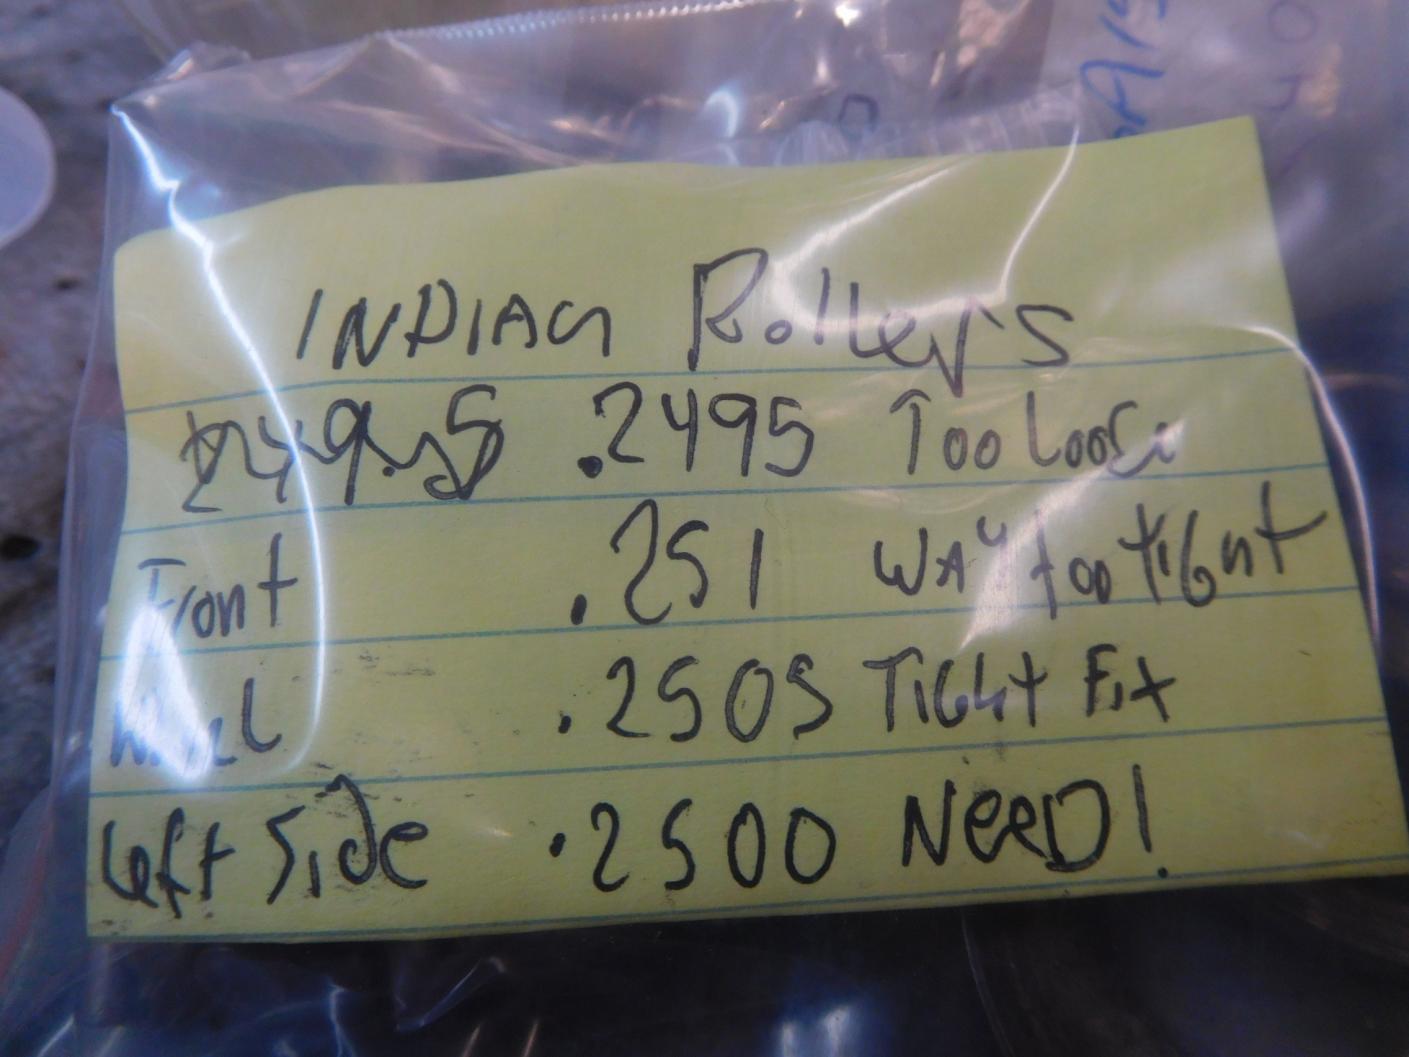 INDIAN Rollers
.2495 Too Loose
Front .251 WAY too tight
Wheel .2505 Tight Fix
Left Side .2500 NeeD!